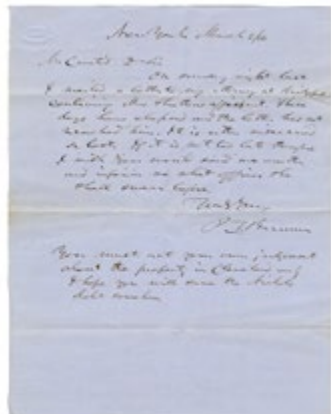 New York March
Mr Curtis D Sir
On Sunday night last
I mailed a letter to my attorney at Bridgeport
containing Mrs affidavit. Three
days have elapsed and the letter has not
reached him. It is either miscarried
or lost. If it is not too late
I wish you would send me another
and inform me what officer she
shall swear before
Truly Yours
You must use your own judgment
about the property in Cleveland
I hope you will save the
debt